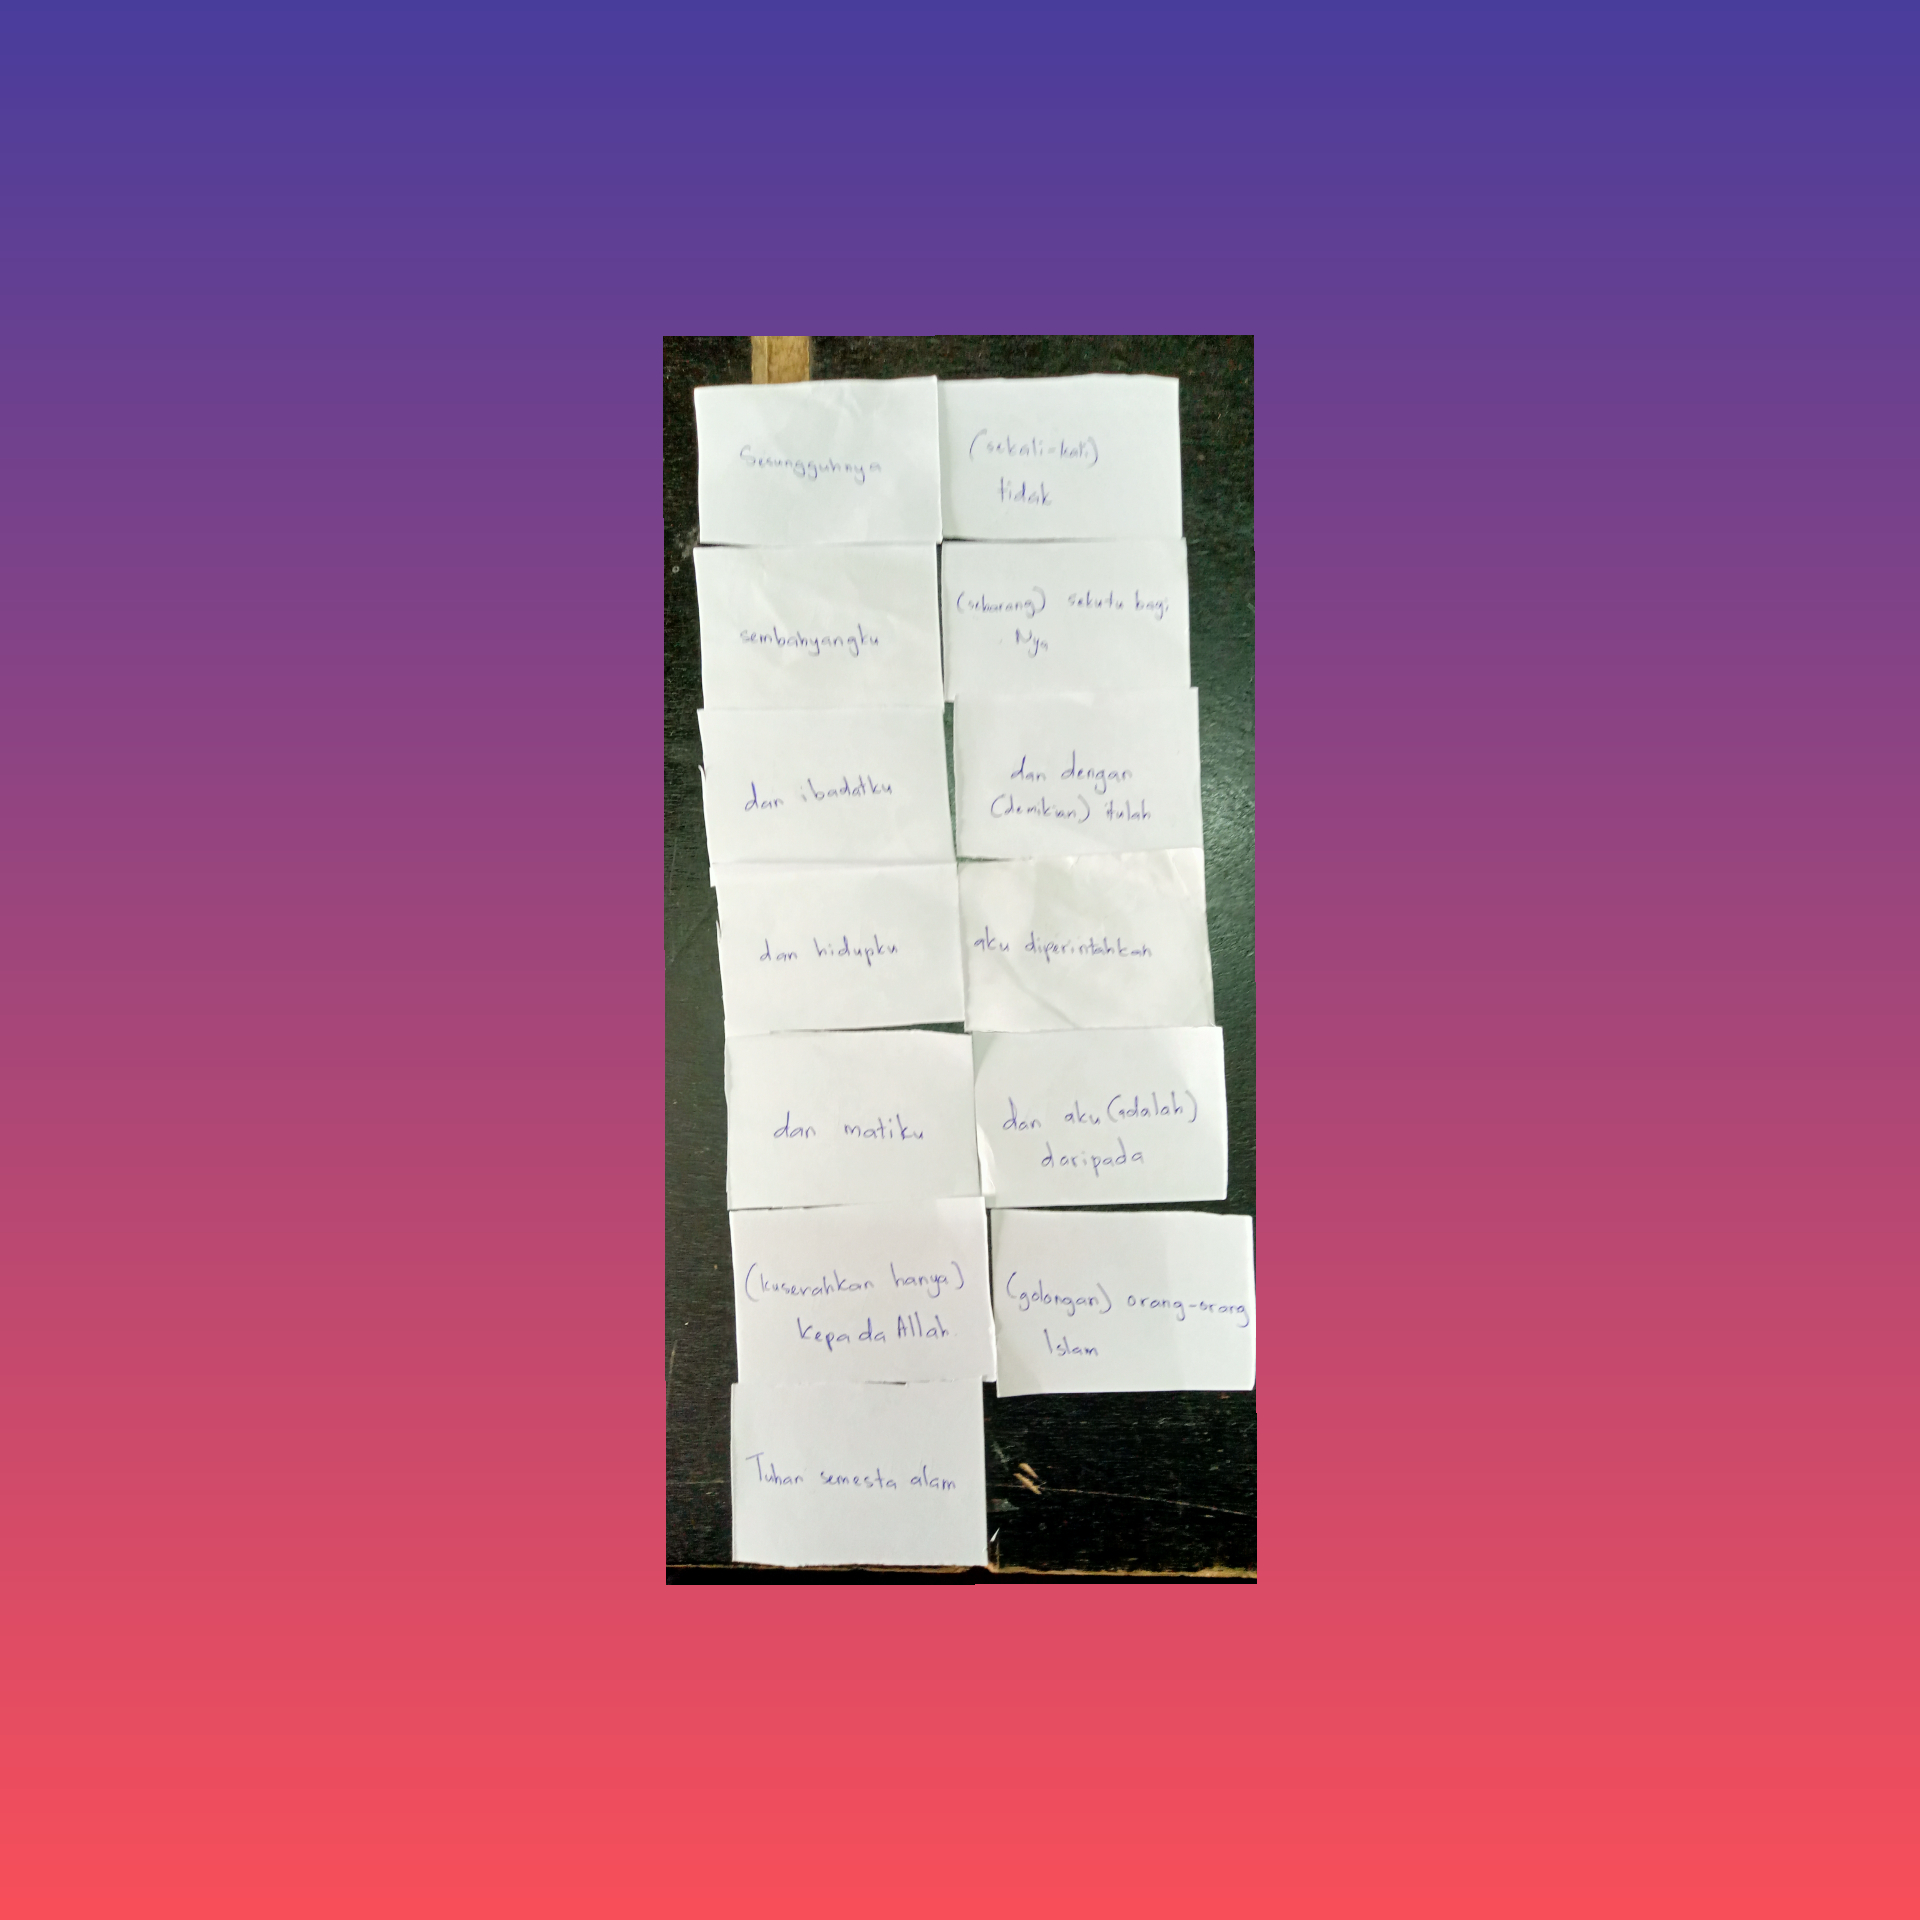 Sesungguhnya
sembahyangku
dan ibadatku
dan hidupku
dan matiku
(kuserahkan hanya)
kepada Allah.
Tuhan semesta alam
(sekali-kali)
tidak
(sebarang) sekutu bagi
Nya
dan dengan
(demikian) itulah
aku diperintahkan
dan aku (adalah)
daripada
(golongan) orang-orang
Islam